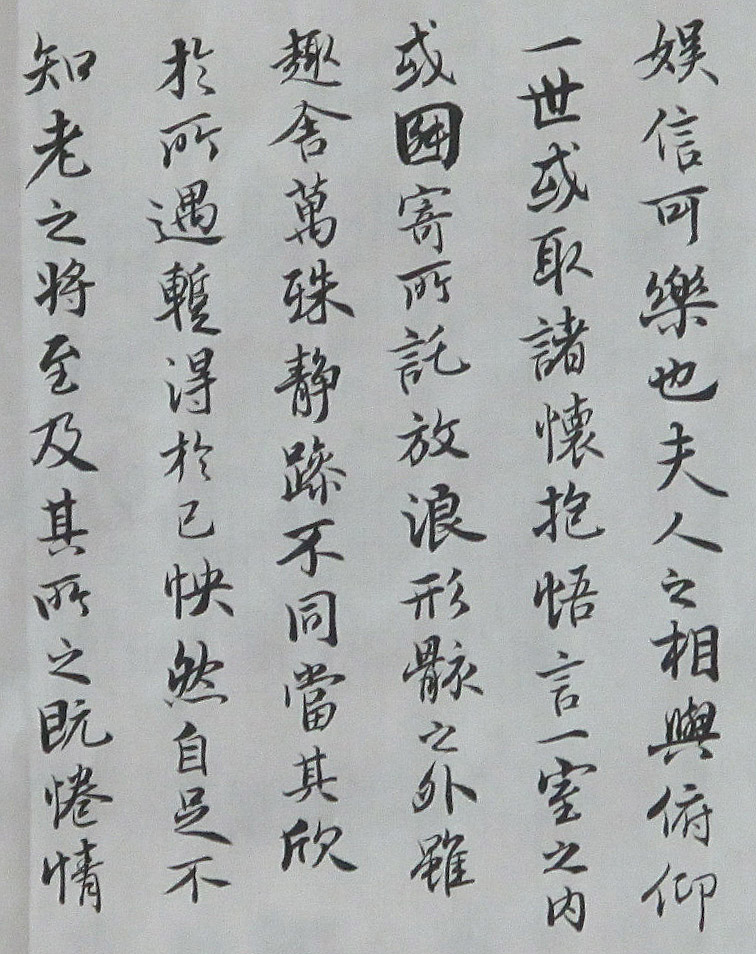 娛信可樂也夫人之相與俯仰
一世或取諸懷抱悟言一室之内
或因寄所託放浪形骸之外雖
趣舍萬殊静躁不同當其欣
於所遇暫得於己怏然自足不
知老之将至及其所之既惓情